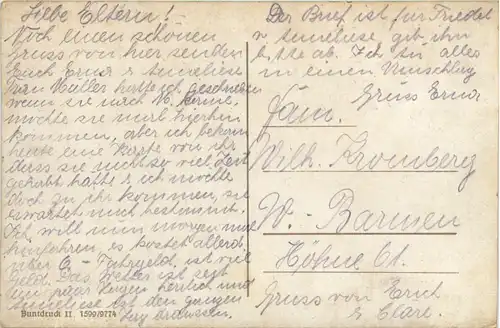 Liebe Eltern!
Noch einen schönen
Gruss von hier senden
Euch Erna & Anneliese
Frau Müller hatte ich geschrieben
wenn sie nach B. käme,
möchte sie mal hierhin
kommen, aber ich bekam
heute eine Karte von ihr
dass sie nicht so viel Zeit
gehabt hätte & ich möchte
doch zu ihr kommen, sie
erwartet mich bestimmt.
Ich will nun morgen mal
hinfahren, es kostet allerd.
über 6 - Fahrgeld, ist viel
Geld. Das Wetter ist jetzt
ein paar Tagen herrlich und
Anneliese ist den ganzen
Tag draussen.
Buntdruck II 1599/9774
Der Brief ist für Friedel
v. Anneliese gib ihn
bitte ab. Ich tu alles
in einen Umschlag
Gruss Erna
Fam.
Wilh. Kromberg
W.-Barmen
Höhne 61.
Gruss von Erich
& Clare.